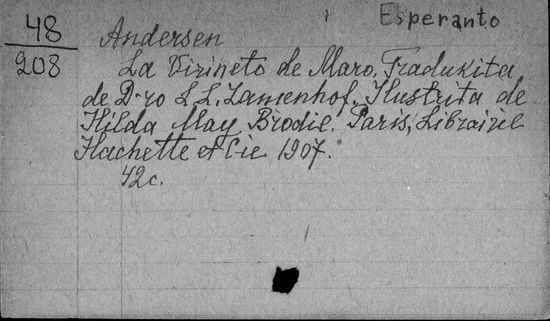 Esperanto
48
208
Andersen
La Virineto de Maro. Tradukita
de D-ro L. L. Zamenhof. Ilustrita de
Hilda May Brodie. Paris, Librairie
Hachette et Cie 1907.
42c.